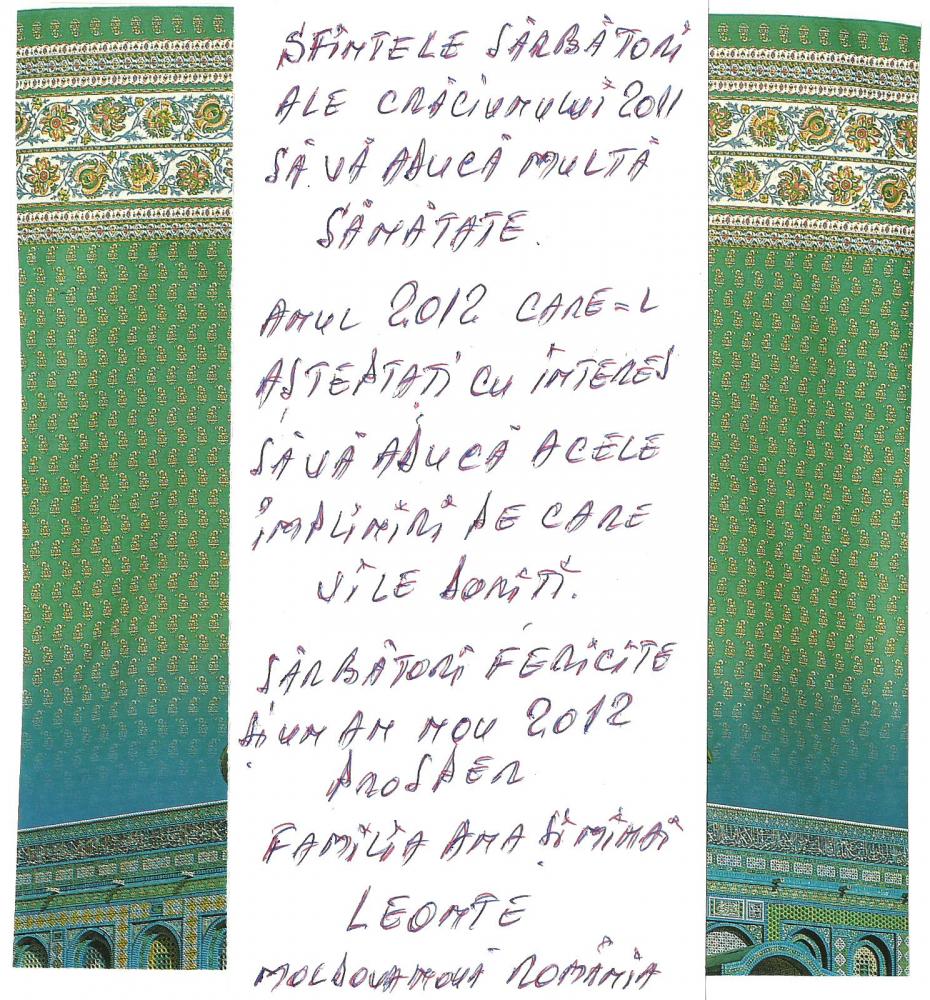 SFINTELE SĂRBĂTORI
ALE CRĂCIUNULUI 2011
SĂ VĂ ADUCĂ MULTĂ
SĂNĂTATE.
ANUL 2012 CARE=L
AŞTEPTAŢI CU INTERES
SĂ VĂ ADUCĂ ACELE
ÎMPLINIRI PE CARE
VI LE DORIŢI.
SĂRBĂTORI FERICITE
ŞI UN AN NOU 2012
PROSPER
FAMILIA ANA ŞI MIHAI
LEONTE
MOLDOVA NOUĂ ROMÂNIA